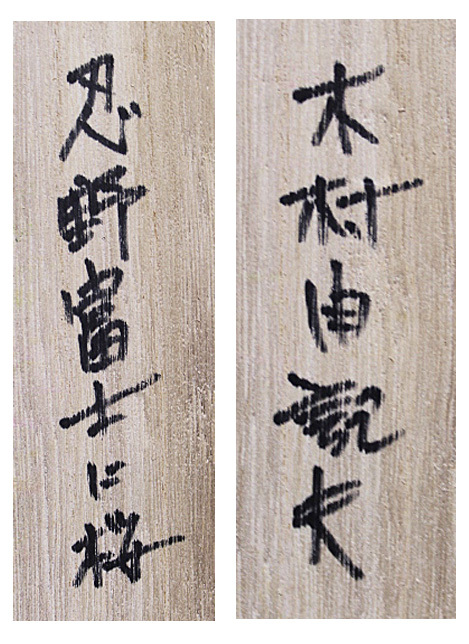 忍野富士に桜
木村由記夫